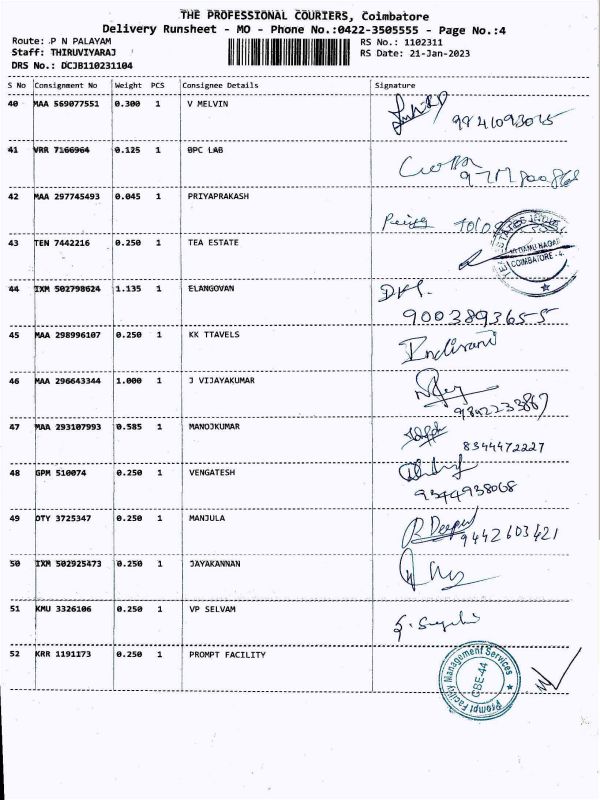 THE PROFESSIONAL COURIERS, Coimbatore
Delivery Runsheet - MO - Phone No.:0422-3505555 - Page No.:4
Route: .P N PALAYAM RS No.: 1102311
Staff: THIRUVIYARAJ RS Date: 21-Jan-2023
DRS No.: DCJB110231104
S No Consignment No Weight PCS Consignee Details Signature
40 MAA 569077551 0.300 1 V MELVIN
41 VRR 7166964 0.125 1 BPC LAB
42 MAA 297745493 0.045 1 PRIYAPRAKASH
43 TEN 7442216 0.250 1 TEA ESTATE
COIMBATORE - 4.
44 IXM 502798624 1.135 1 ELANGOVAN
9003893655
45 MAA 298996107 0.250 1 KK TTAVELS
Indirani
46 MAA 296643344 1.000 1 J VIJAYAKUMAR
9842233867
47 MAA 293107993 0.585 1 MANOJKUMAR
8344472227
48 GPM 510074 0.250 1 VENGATESH
9344938068
49 OTY 3725347 0.250 1 MANJULA
9442603421
50 IXM 502925473 0.250 1 JAYAKANNAN
51 KMU 3326106 0.250 1 VP SELVAM
52 KRR 1191173 0.250 1 PROMPT FACILITY
Prompt Facility Management Services
CBE-44